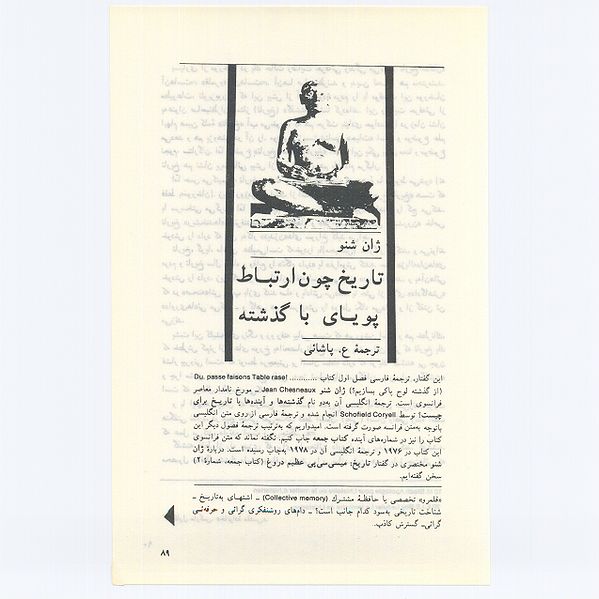 ژان شنو
تاریخ چون ارتباط
پویای با گذشته
ترجمهٔ ع. پاشائی
این گفتار، ترجمهٔ فارسی فصل اول کتاب ............ Du, passe faisons Table rase!
(از گذشته لوح پاکی بسازیم؟) ژان شنو Jean Chesneaux ـ مورخ نامدار معاصر
فرانسوی است. ترجمهٔ انگلیسی آن به‌دو نام گذشته‌ها و آینده‌ها یا تاریخ برای
چیست؟ توسط Schofield Coryell انجام شده و ترجمهٔ فارسی از روی متن انگلیسی
باتوجه به‌متن فرانسه صورت گرفته است. امیدواریم که به‌ترتیب ترجمهٔ فصول دیگر این
کتاب را نیز در شماره‌های آینده کتاب جمعه چاپ کنیم. نگفته نماند که متن فرانسوی
این کتاب در ۱۹۷۶ و ترجمهٔ انگلیسی آن در ۱۹۷۸ به‌چاپ رسیده است. دربارهٔ ژان
شنو مختصری در گفتار تاریخ: میسی‌سی‌پی عظیم دروغ (کتاب جمعه، شمارهٔ ۲)
سخن گفته‌ایم.
«قلمرو» تخصصی یا حافظهٔ مشترک (Collective memory) ـ اشتهای به‌تاریخ ـ
شناخت تاریخی به‌سود کدام جانب است؟ ـ دام‌های روشنفکری گرائی و حرفه‌ئی
گرائی‌ـ گسترش کاذب.
۸۹